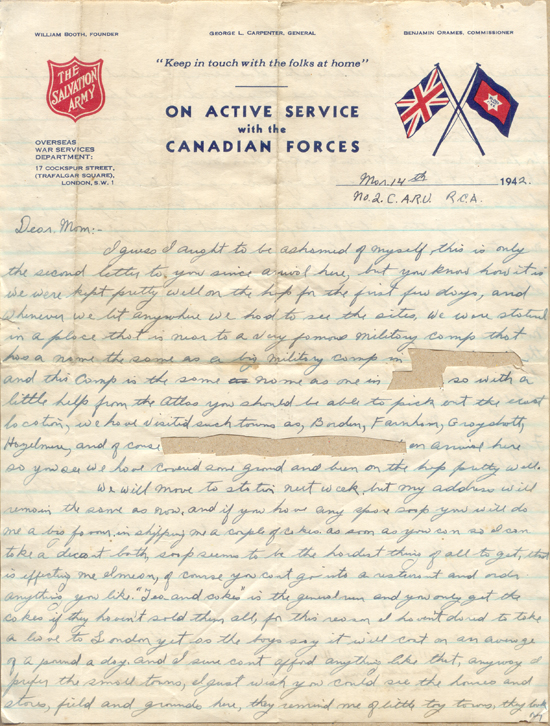 WILLIAM BOOTH, FOUNDER
GEORGE L. CARPENTER, GENERAL
BENJAMIN ORAMES, COMMISSIONER
"Keep in touch with the folks at home"
THE
SALVATION
ARMY
ON ACTIVE SERVICE
with the
CANADIAN FORCES
OVERSEAS
WAR SERVICES
DEPARTMENT:
17 COCKSPUR STREET,
(TRAFALGAR SQUARE),
LONDON, S.W. 1
Mar. 14th 1942.
No. 2. C.A.R.U. R.C.A.
Dear Mom:-
I guess I aught to be ashamed of myself, this is only
the second letter to you since arival here, but you know how it is
we were kept pretty well on the hop for the first few days, and
whenever we hit anywhere we had to see the sites, we were stationed
in a place that is near to a very famous Military camp that
has a name the same as a big Military camp in
and this Camp is the same as name as one in so with a
little help from the Atlas you should be able to pick out the exact
location, we have visited such towns as, Borden, Farnham, Grayshott,
Hazelmere, and of corse on arrival here
so you see we have covered some ground and been on the hop pretty well.
We will move to station next week, but my address will
remain the same as now, and if you have any spare soap you will do
me a big favour in shipping me a couple of cakes as soon as you can so I can
take a decent bath, soap seems to be the hardest thing of all to get, that
is effecting me I mean, of course you cant go into a resterant and order
anything you like. "Tea and cakes" is the general run and you only get the
cakes if they haven't sold them all, for this reason I havent dared to take
a leave to London yet as the boys say it will cost on an average
of a pound a day, and I sure cant afford anything like that, anyway I
prefer the small towns, I just wish you could see the homes and
stores, field and grounds here, they remind me of little toy towns, they